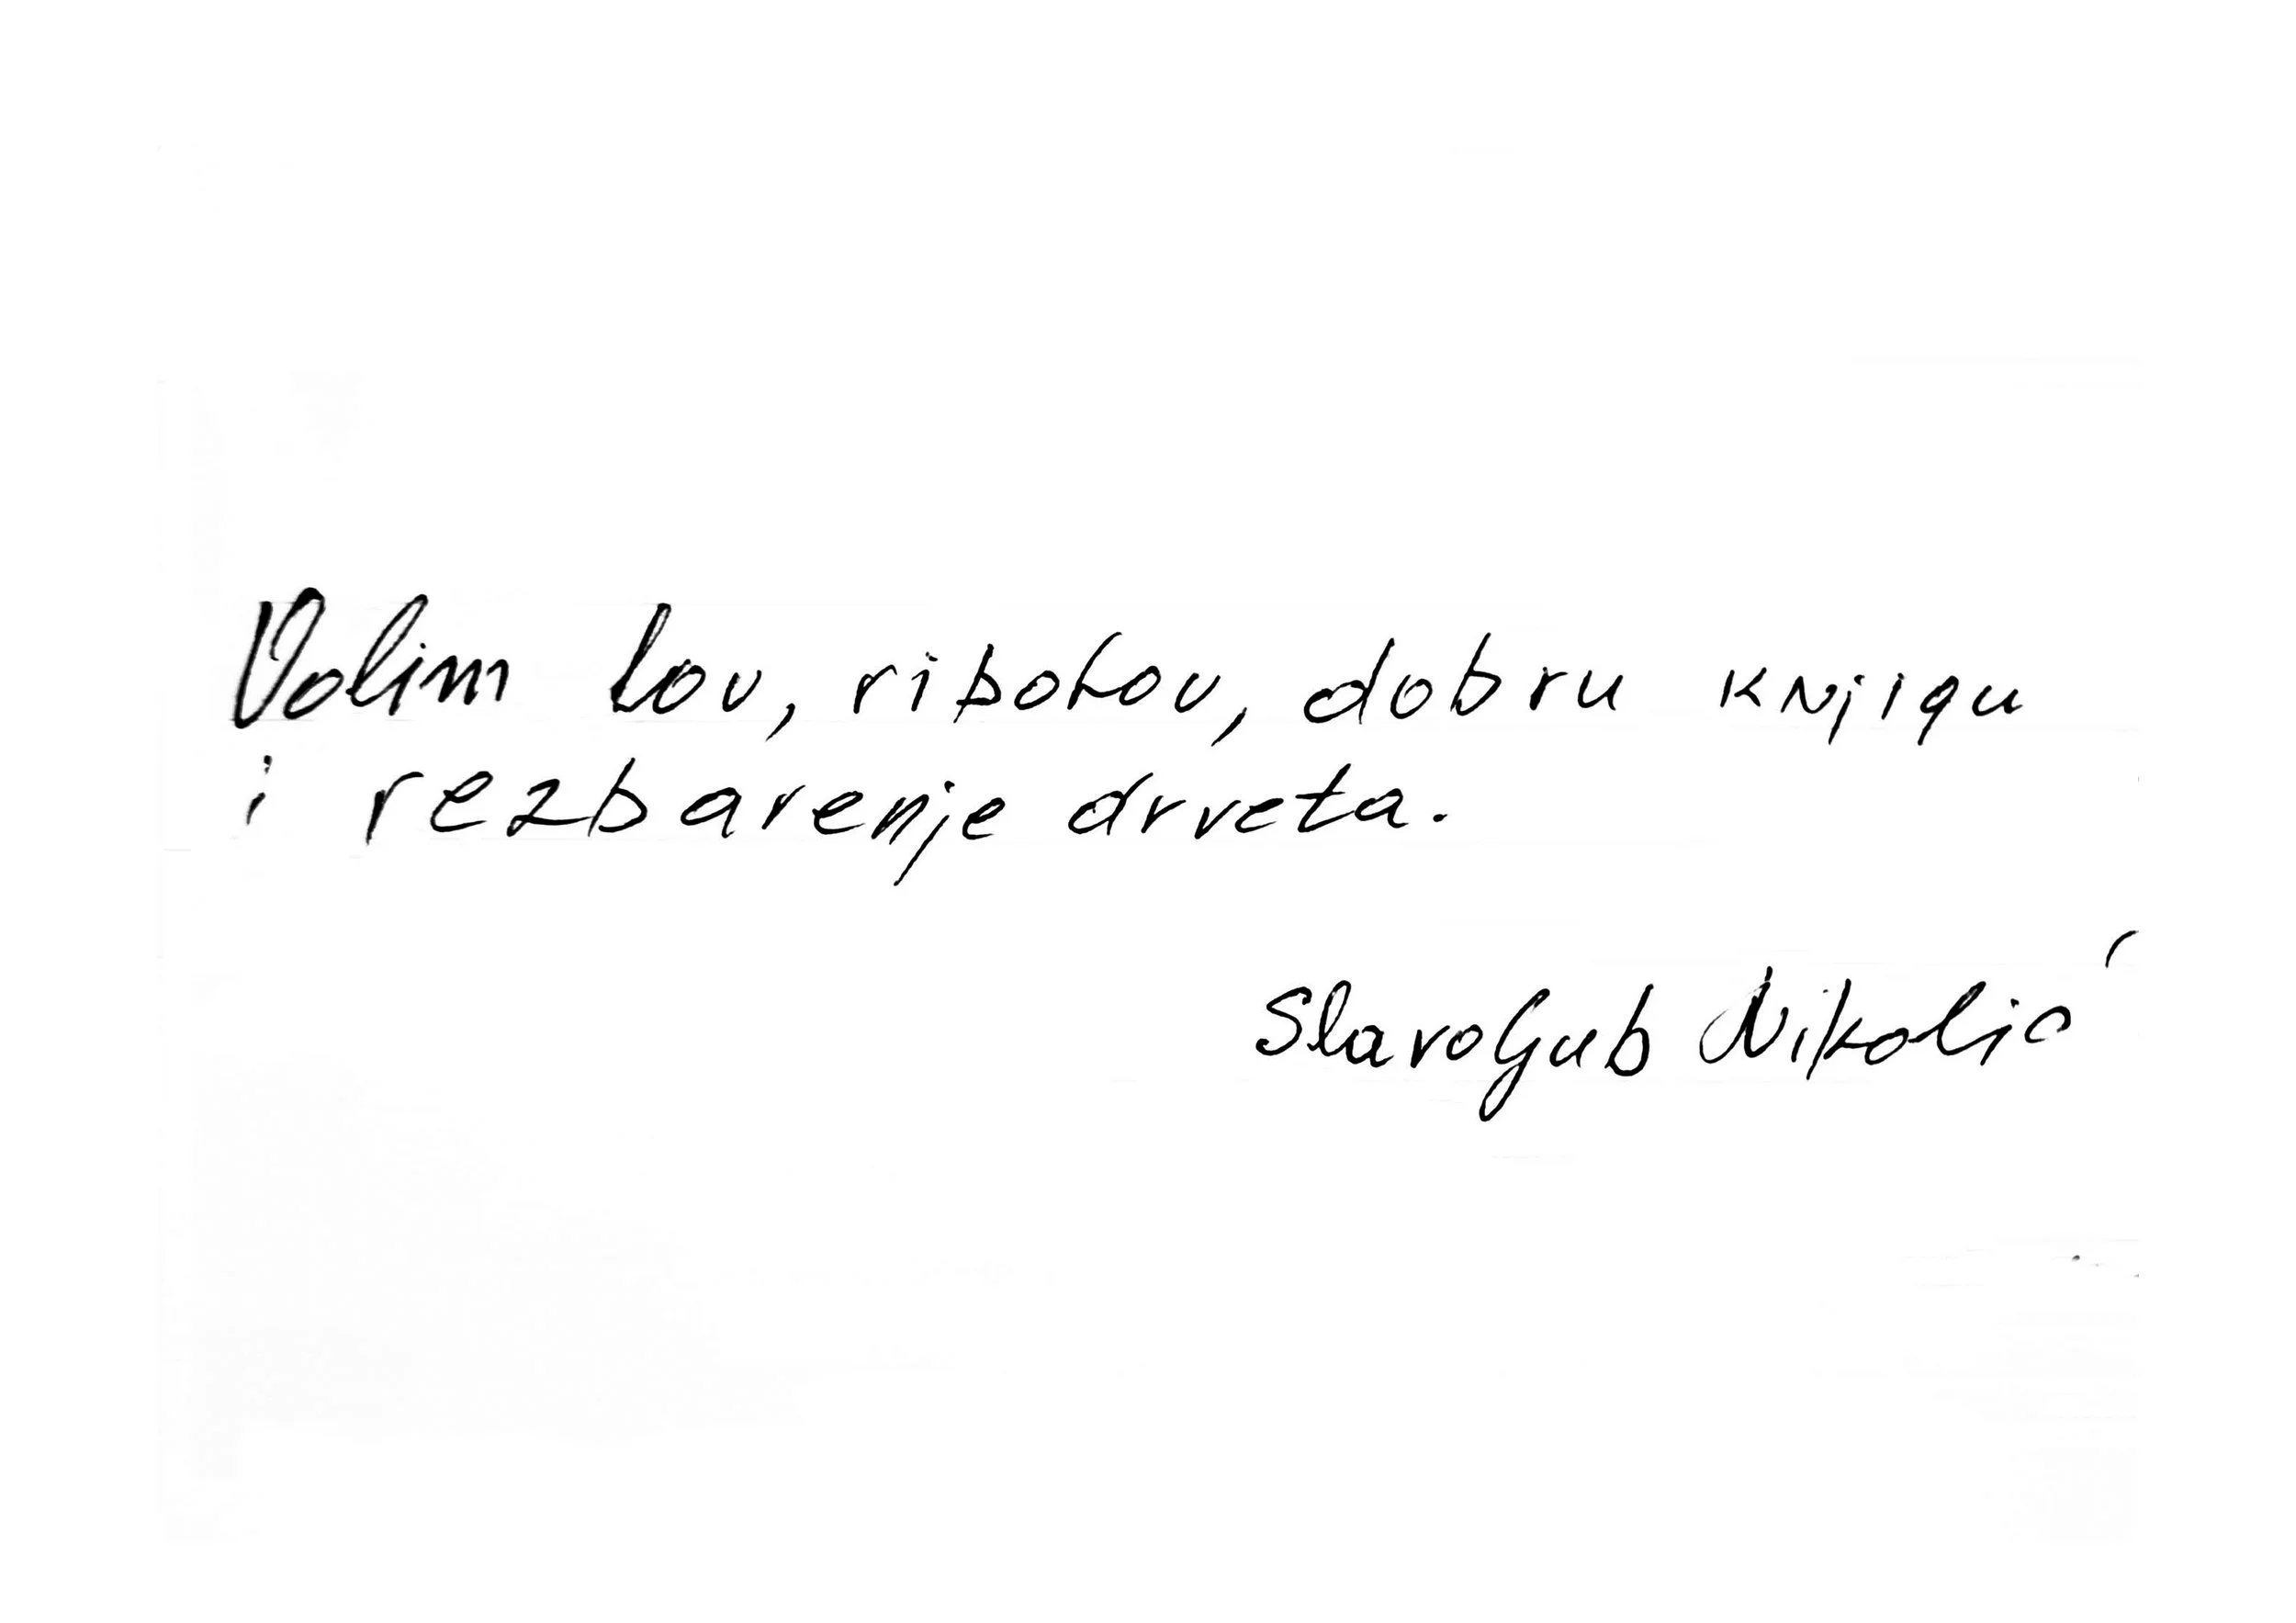 Volim lov, ribolov, dobru knjigu
i rezbarenje drveta.
Slavoljub Nikolić